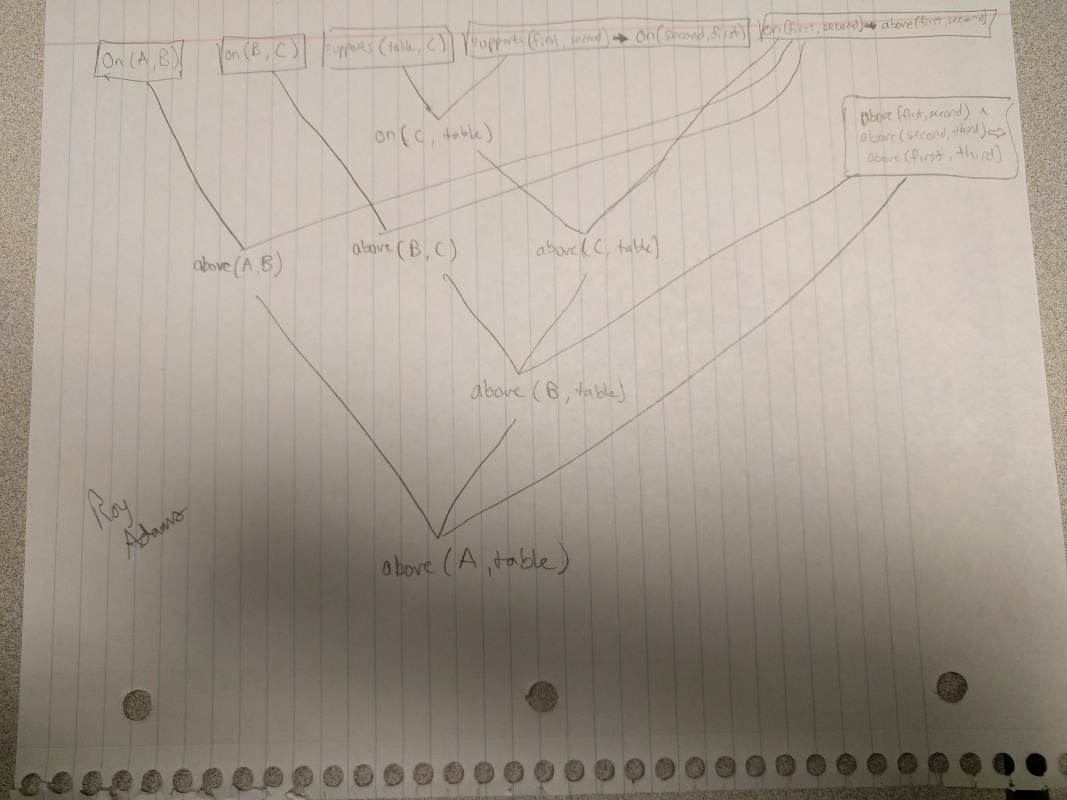 On(A,B)
on(B, C)
supports(table, C)
supports(first, second) → on(second, first)
on(first, second) → above(first, second)
above(first, second) ∧
above(second, third) ⇒
above(first, third)
on(C, table)
above(A,B)
above(B, C)
above(C, table)
above(B, table)
Roy
Adams
above(A, table)